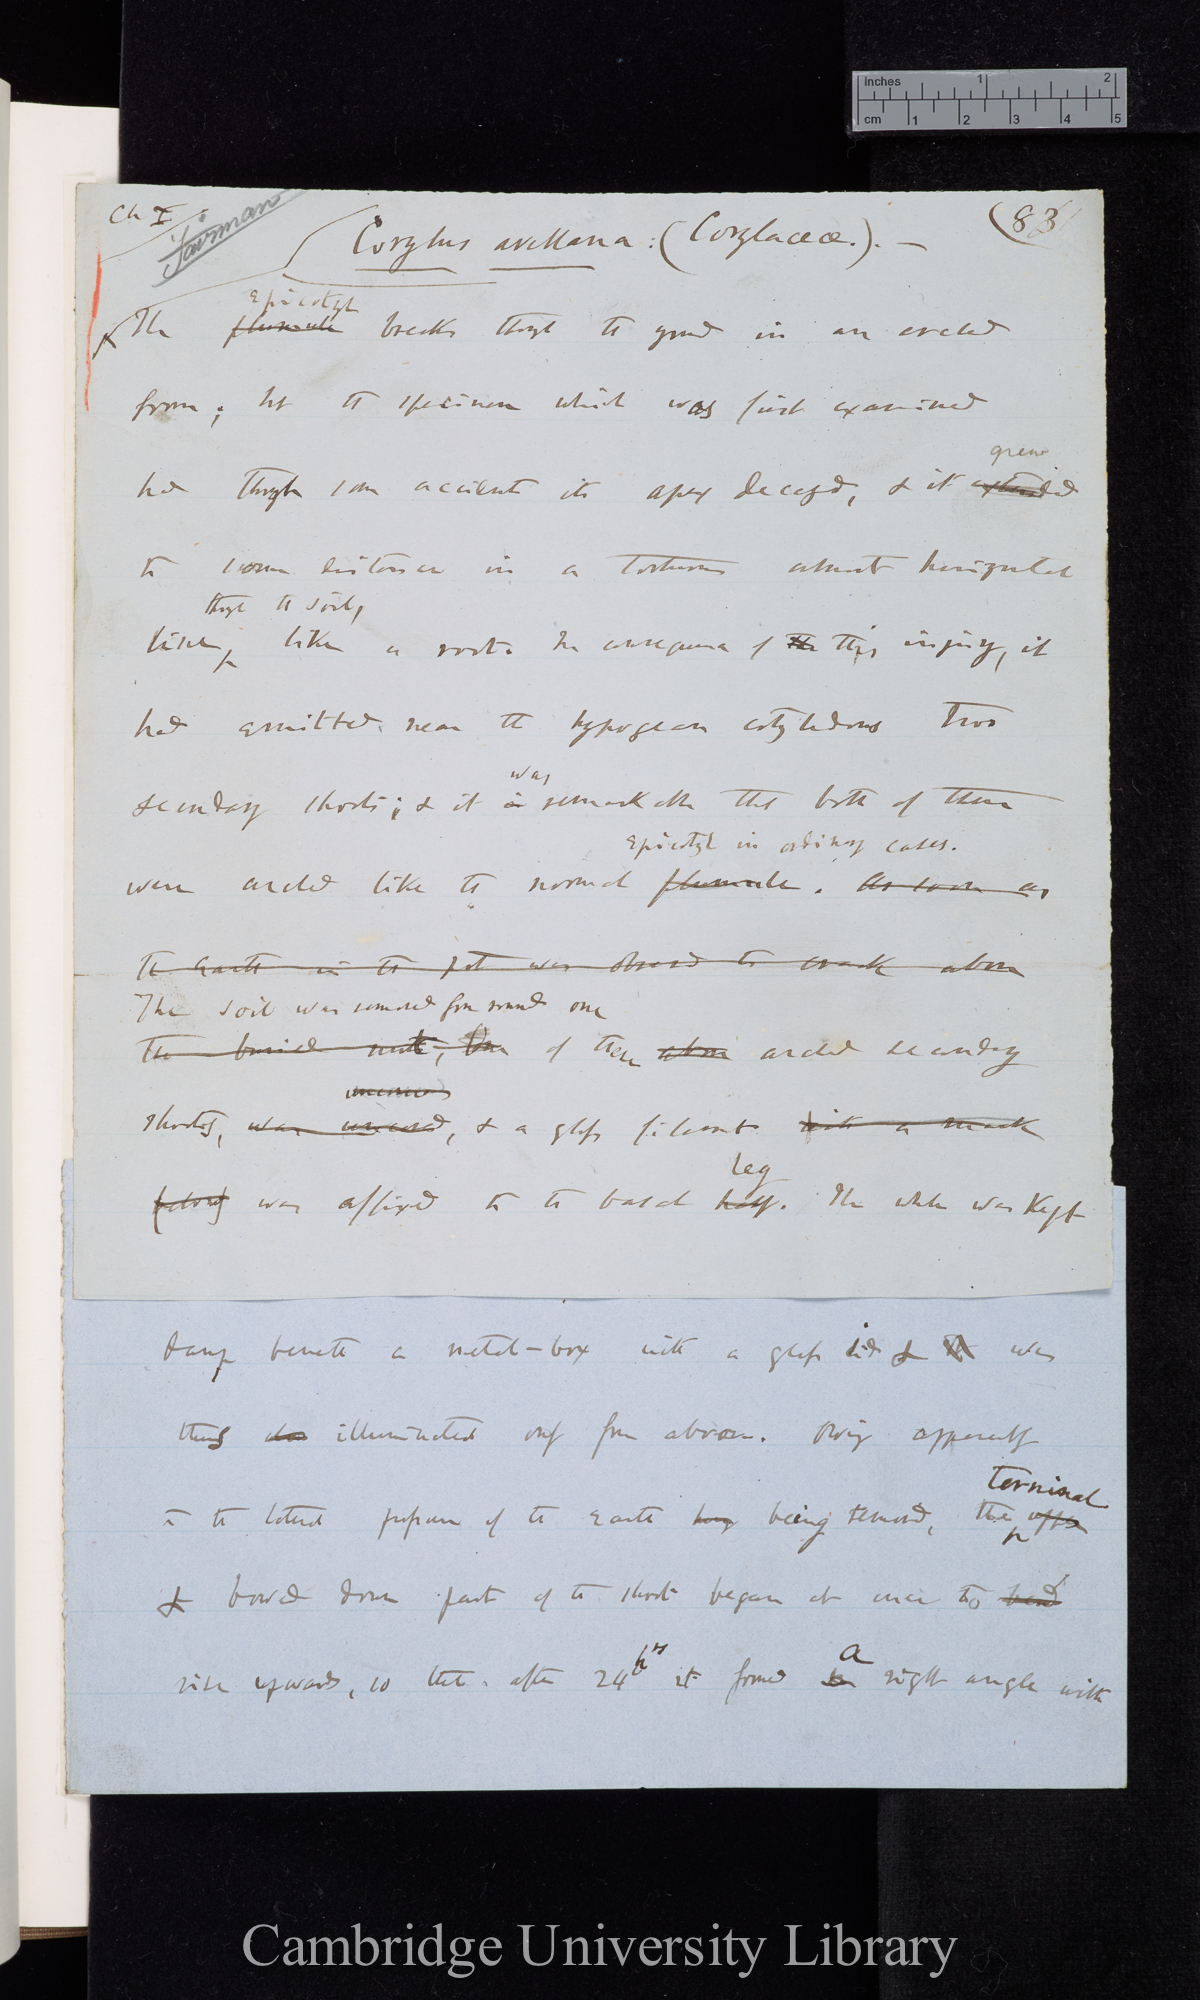 Inches 1 2
cm 1 2 3 4 5
Ch I
Fairman
(83)
Corylus avellana: (Corylaceæ.). —
Epicotyl
The plumule breaks through the ground in an arched
form; but the specimen which was first examined
grew
had through some accident its apex decayed, & it extended
to some distance in a tortuous almost horizontal
through the soil,
direction, like a root. In consequence of the this injury, it
had emitted near the hypogean cotyledons two
was
secondary shoots; & it is remarkable that both of these
Epicotyl in ordinary cases.
were arched like the normal plumule. As soon as
the earth in the pot was observed to crack above
The soil was removed from round one
the buried nut, One of these above arched secondary
shoots, was uncovered, & a glass filament with a mark
leg
was affixed to the basal half. The whole was kept
damp beneath a metal-box with a glass lid & it was
thus illuminated only from above. Owing apparently
terminal
to the lateral pressure of the earth being removed, the upper
& bowed down part of the shoot began at once to bend
hrs a
rise upwards, so that after 24 it formed right angle with
Cambridge University Library